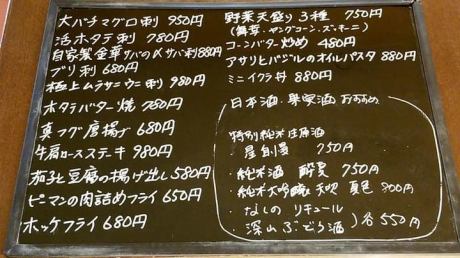 大バチマグロ刺 950円
活ホタテ刺 780円
自家製金華サバの〆サバ刺 880円
ブリ刺 680円
極上ムラサキウニ刺 980円
ホタテバター焼 780円
真フグ唐揚げ 680円
牛肩ロースステーキ 980円
茄子と豆腐の揚げ出し 580円
ピーマンの肉詰めフライ 650円
ホッケフライ 680円
野菜天盛り3種 750円
(舞茸、ヤングコーン、ズッキーニ)
コーンバター炒め 480円
アサリとバジルのオイルパスタ 880円
ミニイクラ丼 880円
日本酒・果実酒 おすすめ
特別純米生原酒
屋自慢 750円
・純米酒 酔 750円
・純米大吟醸 天吹 夏色 800円
・なしの リキュール
・深山ぶどう酒 )各550円